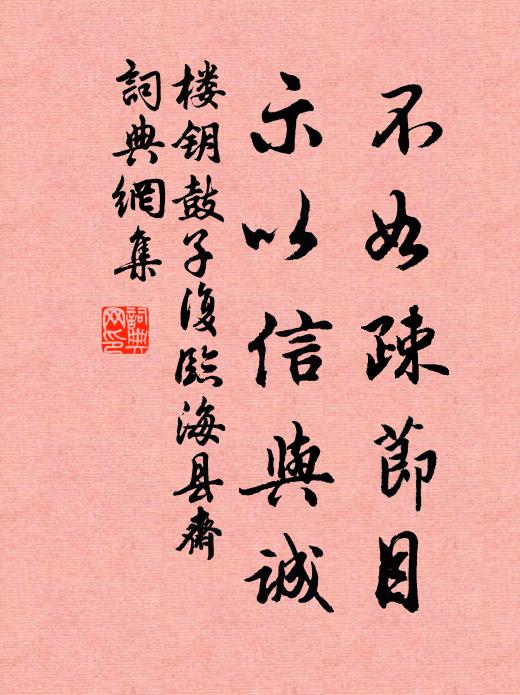 不如疎節目
示以信與誠
楼钥鼓子復臨海县齋
詞典網集
詞典網印